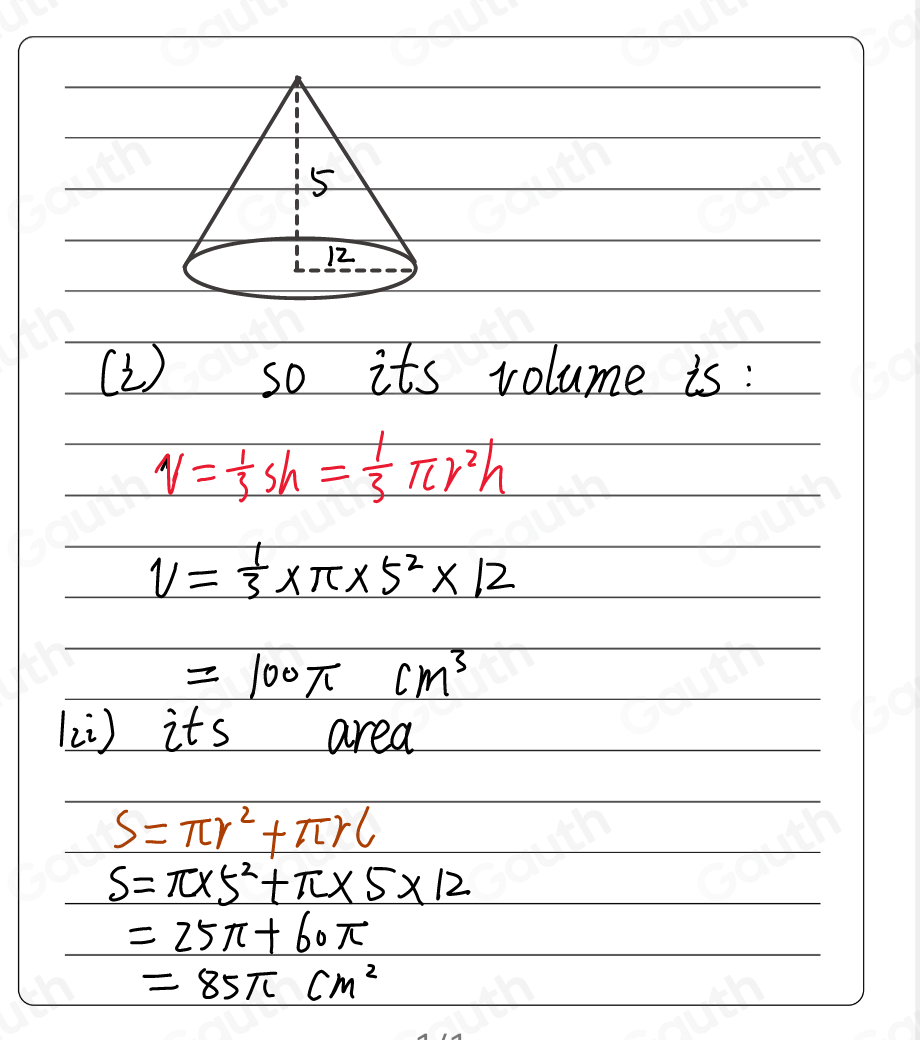 5
12
(i) so its volume is:
V = 1/3 sh = 1/3 πr²h
V = 1/3 × π × 5² × 12
= 100π cm³
(ii) its area
S = πr² + πrl
S = π×5² + π × 5 × 12
= 25π + 60π
= 85π cm²
1/1
Gauth